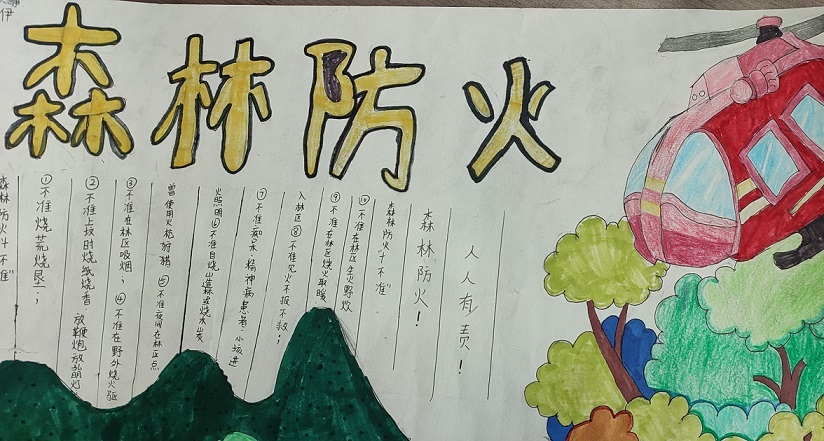 伊
森林防火
森林防火十不准"
①不准烧荒烧垦;
②不准上坟时烧纸烧香,放鞭炮放孔明灯
③不准在林区吸烟;④不准在野外烧火驱
兽使用火枪狩猎⑤不准夜间在林区点
火照明⑥不准自烧山造森或烧水炭
⑦不准痴呆、精神病患者、小孩进
入林区⑧不准见火不报不救;
⑨不准在林区烧火取暖
⑩不准在林区生火野炊
森林防火"十不准"
森林防火!
人人有责!